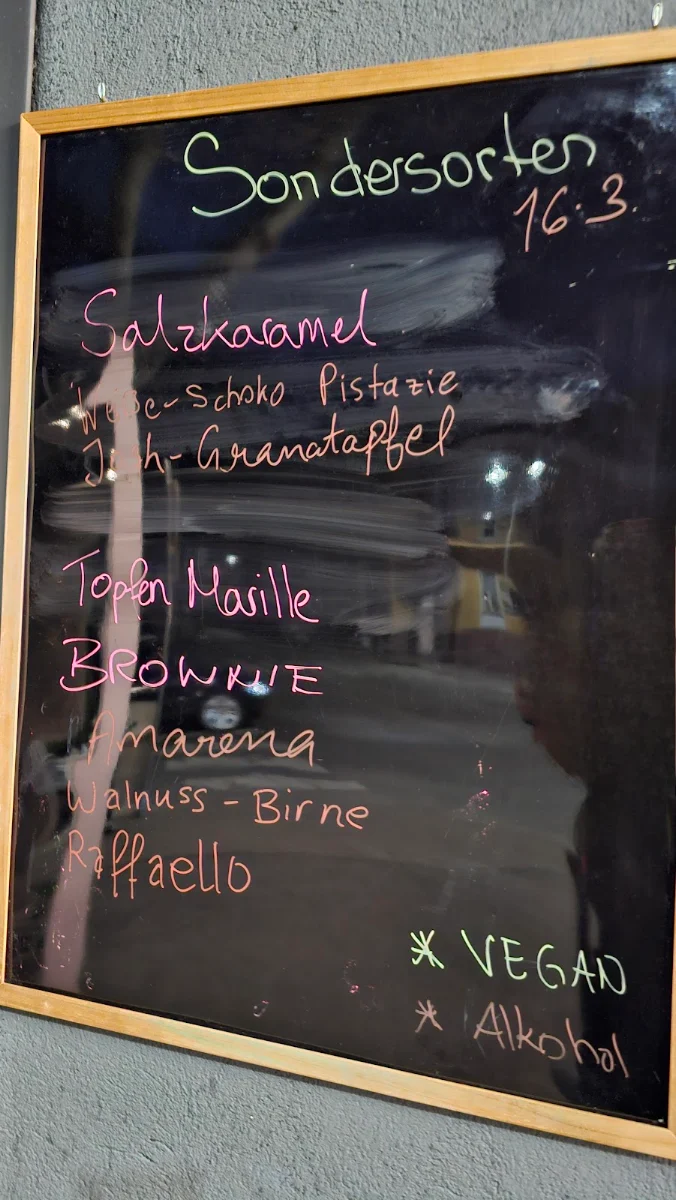 Sondersorten
16.3.
Salzkaramel
Weiße-Schoko Pistazie
Granatapfel
Topfen Marille
BROWNIE
Amarena
Walnuss - Birne
Raffaello
* VEGAN
* Alkohol